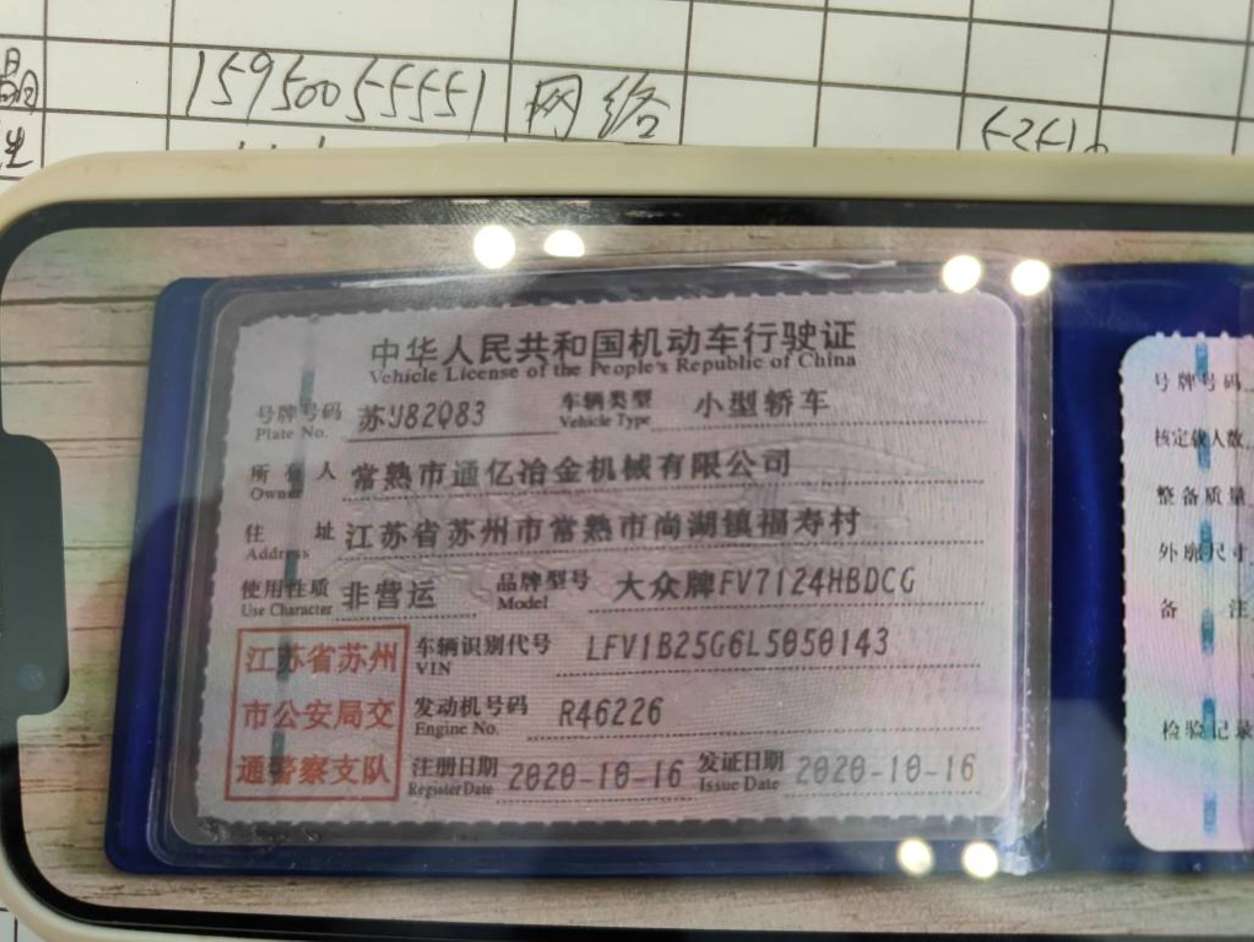 15950055551 网络
中华人民共和国机动车行驶证
Vehicle License of the People's Republic of China
号牌号码 苏U82Q83 车辆类型 小型轿车
Plate No. Vehicle Type
所有人 常熟市通亿冶金机械有限公司
Owner
住址 江苏省苏州市常熟市尚湖镇福寿村
Address
使用性质 非营运 品牌型号 大众牌FV7124HBDCG
Use Character Model
江苏省苏州
市公安局交
通警察支队
车辆识别代号 LFV1B25G6L5050143
VIN
发动机号码 R46226
Engine No.
注册日期 2020-10-16 发证日期 2020-10-16
Register Date Issue Date
号牌号码
核定载人数
整备质量
外廓尺寸
备注
检验记录